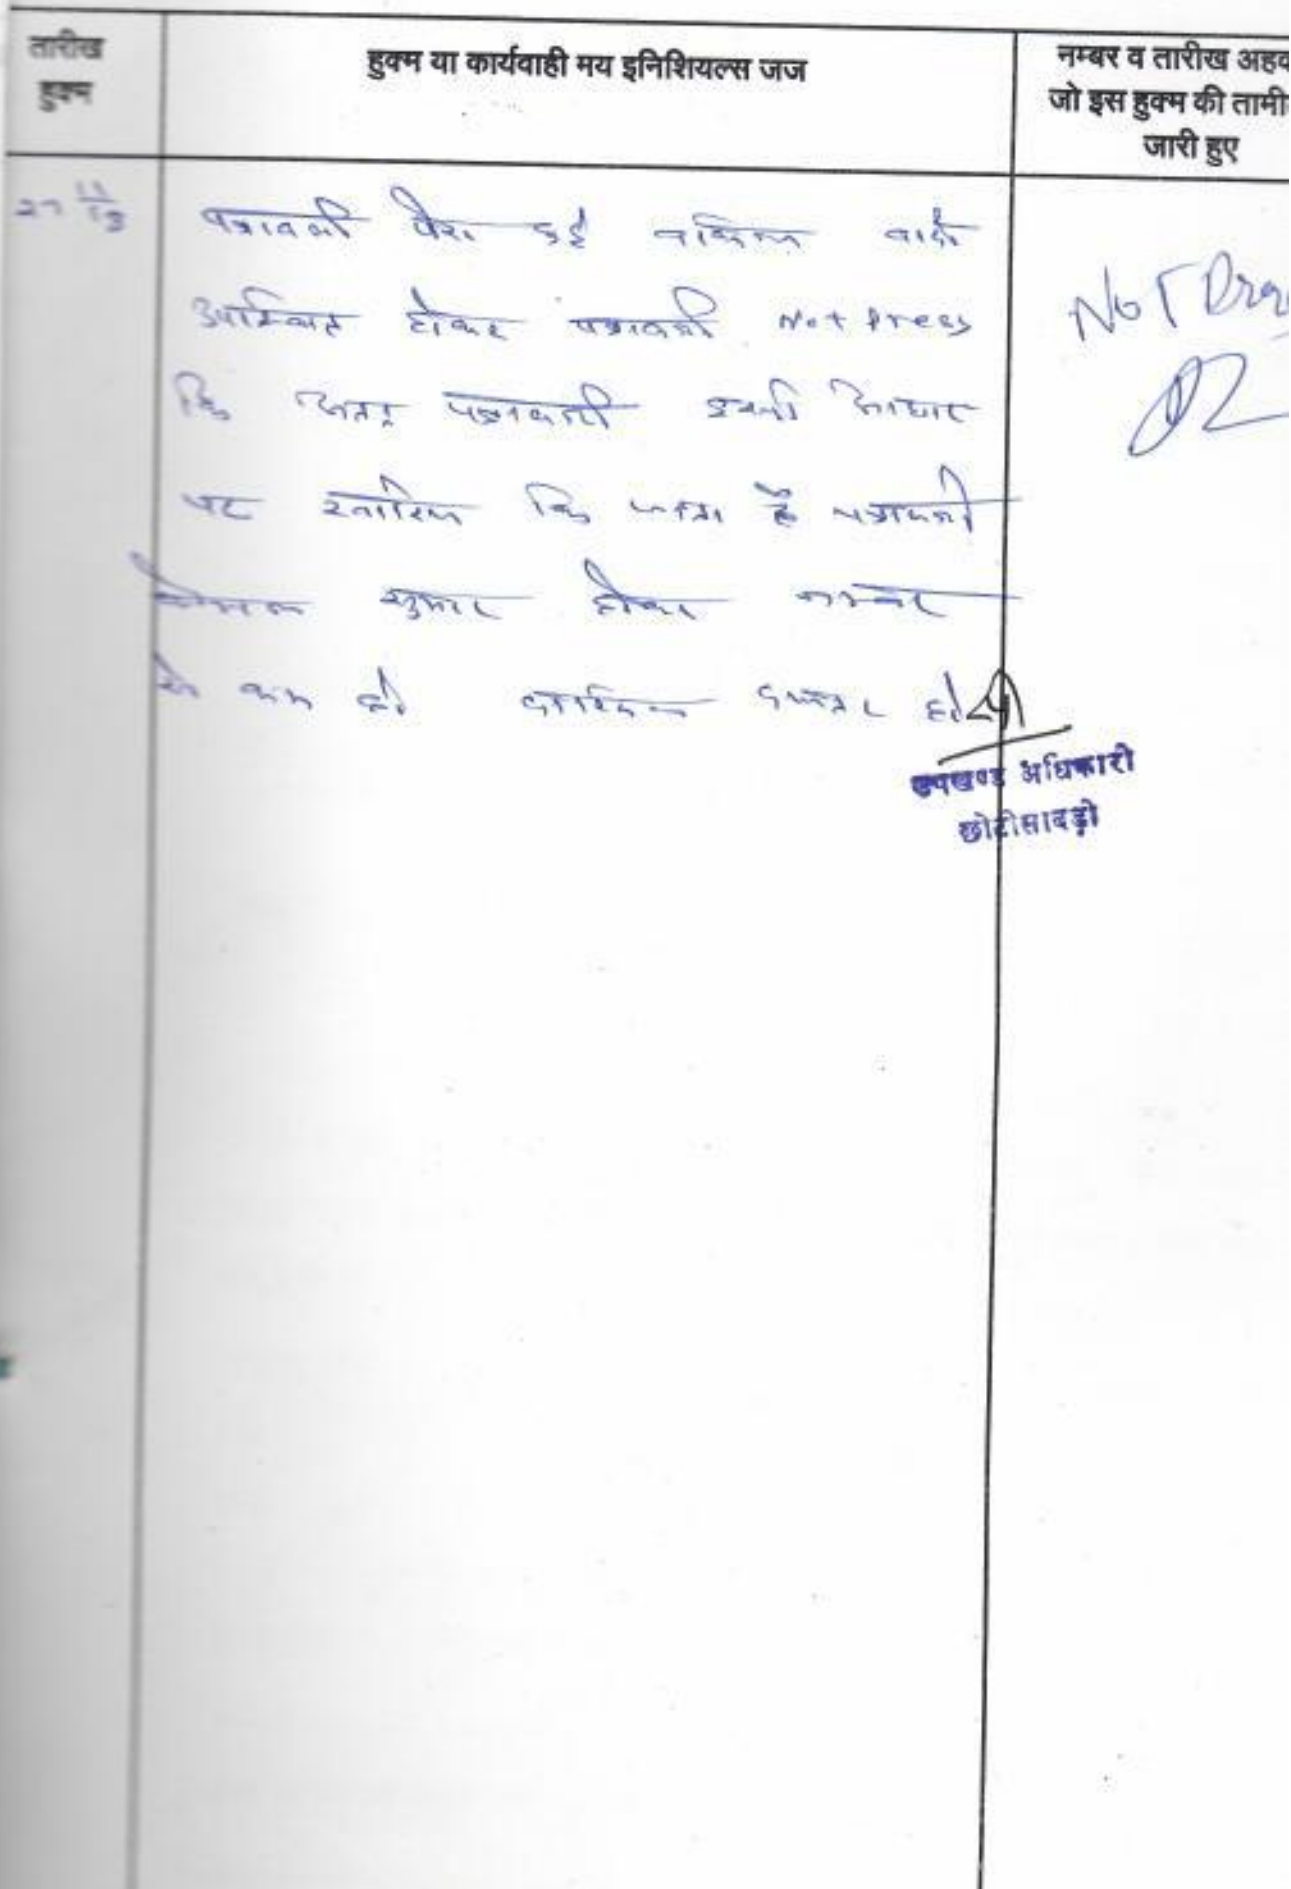 तारीख
हुक्म
हुक्म या कार्यवाही मय इनिशियल्स जज
नम्बर व तारीख अहव
जो इस हुक्म की तामी
जारी हुए
पत्रावली पेश हुई वकिल वादी
उपस्थित होकर पत्रावली Not Press
कि पत्रावली इसी आधार
पर खारिज कि जाती है पत्रावली
फैसल शुमार होकर नम्बर
से कम हो दाखिल दफ्तर हो
Not Press
उपखण्ड अधिकारी
छोटीसादड़ी